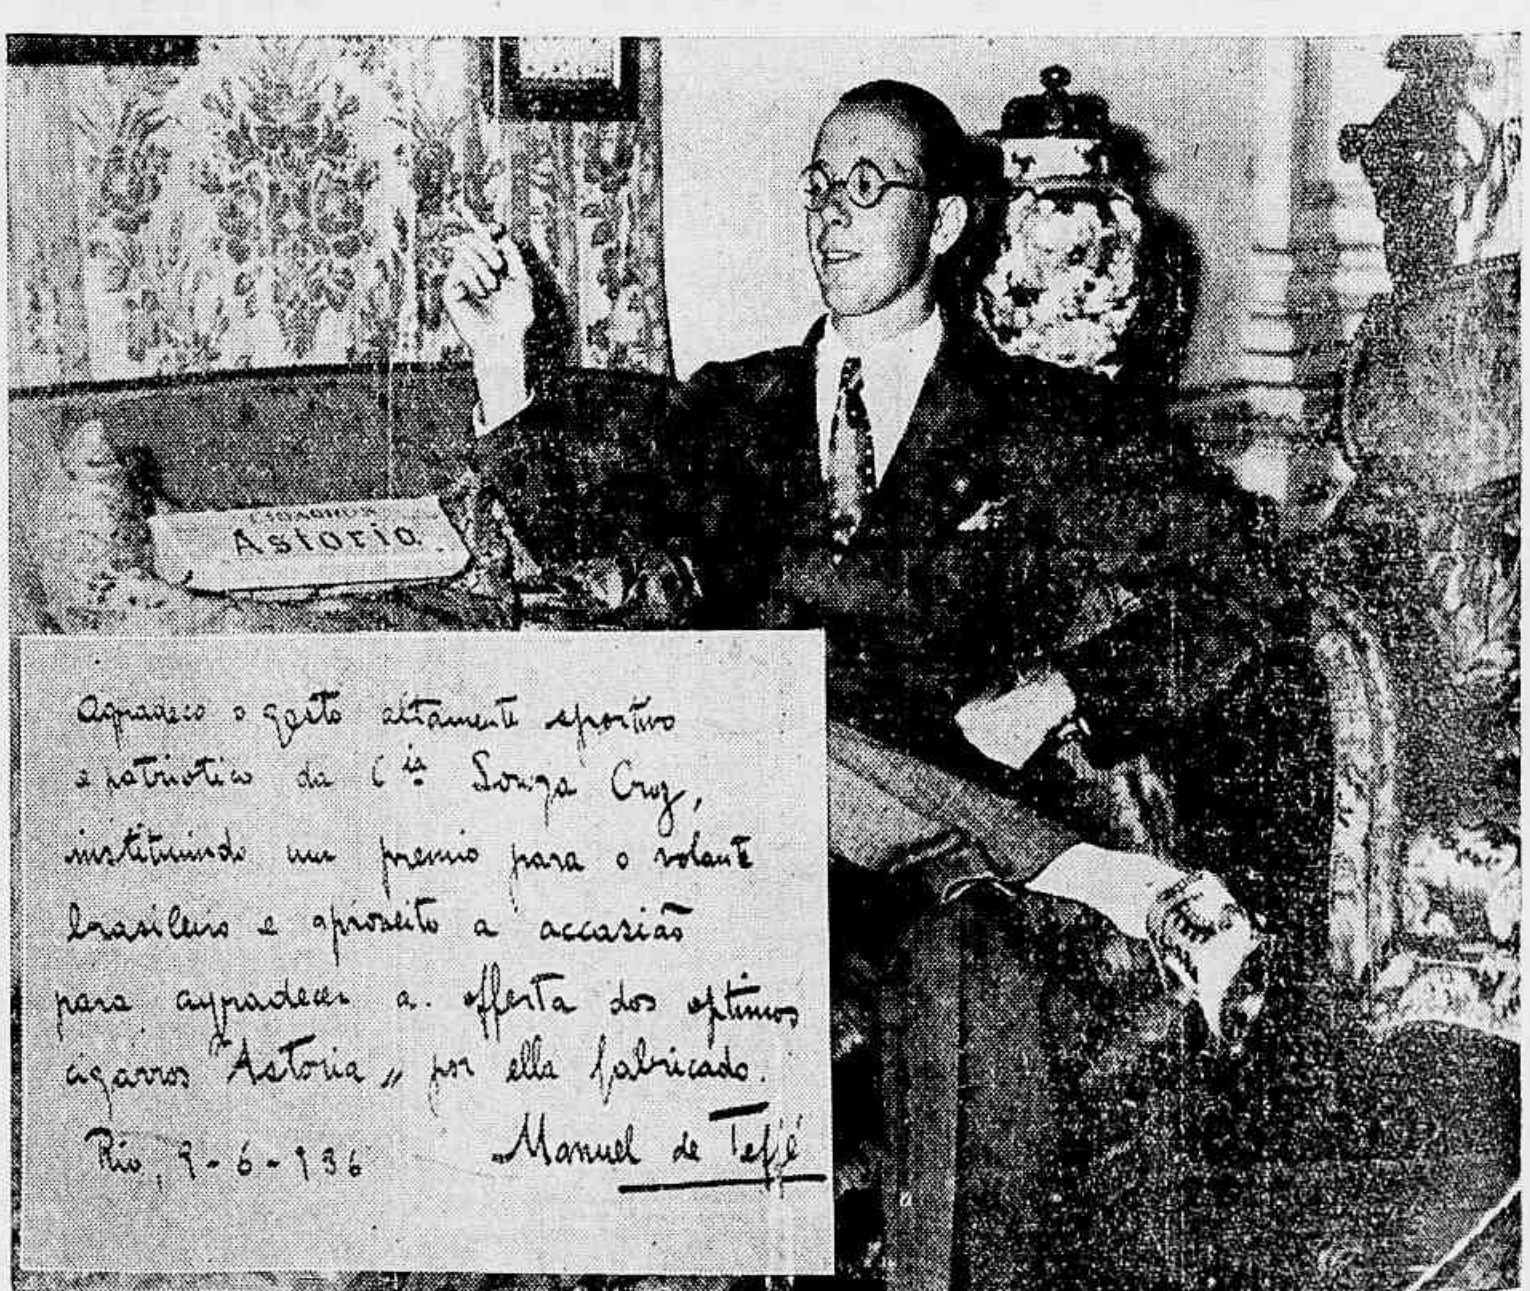 CIGARROS
Astoria
Agradeço o gesto altamente sportivo
e patriotico da Cia Souza Cruz,
instituindo um premio para o volante
brasileiro e aproveito a occasião
para agradecer a offerta dos optimos
cigarros "Astoria„ por ella fabricado.
Rio, 9-6-936 Manuel de Teffé